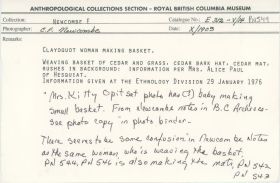 ANTHROPOLOGICAL COLLECTIONS SECTION - ROYAL BRITISH COLUMBIA MUSEUM
Collection: NEWCOMBE F Catalogue No.: PN 541
Maker: C.F. Newcombe Date: X/1903
Remarks:
CLAYOQUOT WOMAN MAKING BASKET.
WEAVING BASKET OF CEDAR AND GRASS, CEDAR BARK HAT, CEDAR MAT,
RUSHES IN BACKGROUND: INFORMATION PER MRS. ALICE PAUL
OF HESQUIAT.
INFORMATION GIVEN AT THE ETHNOLOGY DIVISION 29 JANUARY 1976
"Mrs. Kitty Opitsat photo has (?) baby making
small basket. From Newcombe notes in B.C. Archives-
see photo copy in photo binder.
There seems to be some confusion in Newcombe Notes
as the same woman, who is weaving the basket,
PN 544, PN 546 is also making the mats, PN 542,
PN 543